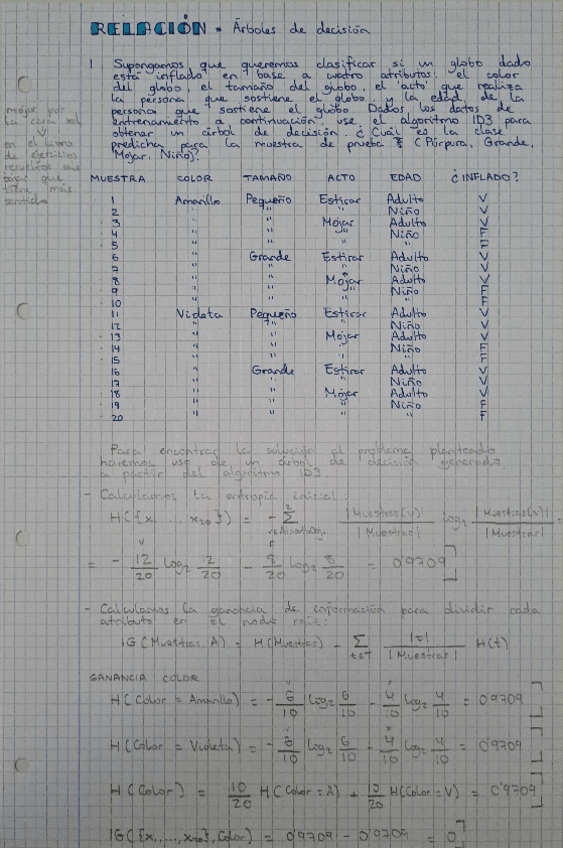 RELACIÓN - Árboles de decisión
1. Supongamos que queremos clasificar si un globo dado
está inflado en base a cuatro atributos: el color
del globo, el tamaño del globo, el 'acto' que realiza
la persona que sostiene el globo y la edad de la
persona que sostiene el globo. Dados los datos de
entrenamiento a continuación, use el algoritmo ID3 para
obtener un árbol de decisión. ¿Cuál es la clase
predicha para la muestra de prueba (Púrpura, Grande,
Mojar, Niño)?
mojar por
la cara
en el libro
de ejercicios
resueltos
que
tiene más
sentido
MUESTRA COLOR TAMAÑO ACTO EDAD ¿INFLADO?
1 Amarillo Pequeño Estirar Adulto V
2 " " " Niño V
3 " " Mojar Adulto V
4 " " " Niño F
5 " " " " F
6 " Grande Estirar Adulto V
7 " " " Niño V
8 " " Mojar Adulto V
9 " " " Niño F
10 " " " " F
11 Violeta Pequeño Estirar Adulto V
12 " " " Niño V
13 " " Mojar Adulto V
14 " " " Niño F
15 " " " " F
16 " Grande Estirar Adulto V
17 " " " Niño V
18 " " Mojar Adulto V
19 " " " Niño F
20 " " " " F
Para encontrar la solución al problema planteado
haremos uso de un árbol de decisión generado
a partir del algoritmo ID3.
- Calculamos la entropía inicial:
H({x, ..., x20}) = - Σ |Muestras(v)| / |Muestras| log2 |Muestras(v)| / |Muestras| =
= - 12/20 log2 2/20 - 8/20 log2 8/20 = 0'9709
- Calculamos la ganancia de información para dividir cada
atributo en el nodo raíz:
IG(Muestras, A) = H(Muestras) - Σ t∈T |t| / |Muestras| H(t)
GANANCIA COLOR
H(Color = Amarillo) = - 6/10 log2 6/10 - 4/10 log2 4/10 = 0'9709
H(Color = Violeta) = - 6/10 log2 6/10 - 4/10 log2 4/10 = 0'9709
H(Color) = 10/20 H(Color=A) + 10/20 H(Color=V) = 0'9709
IG({x1, ..., x20}, Color) = 0'9709 - 0'9709 = 0